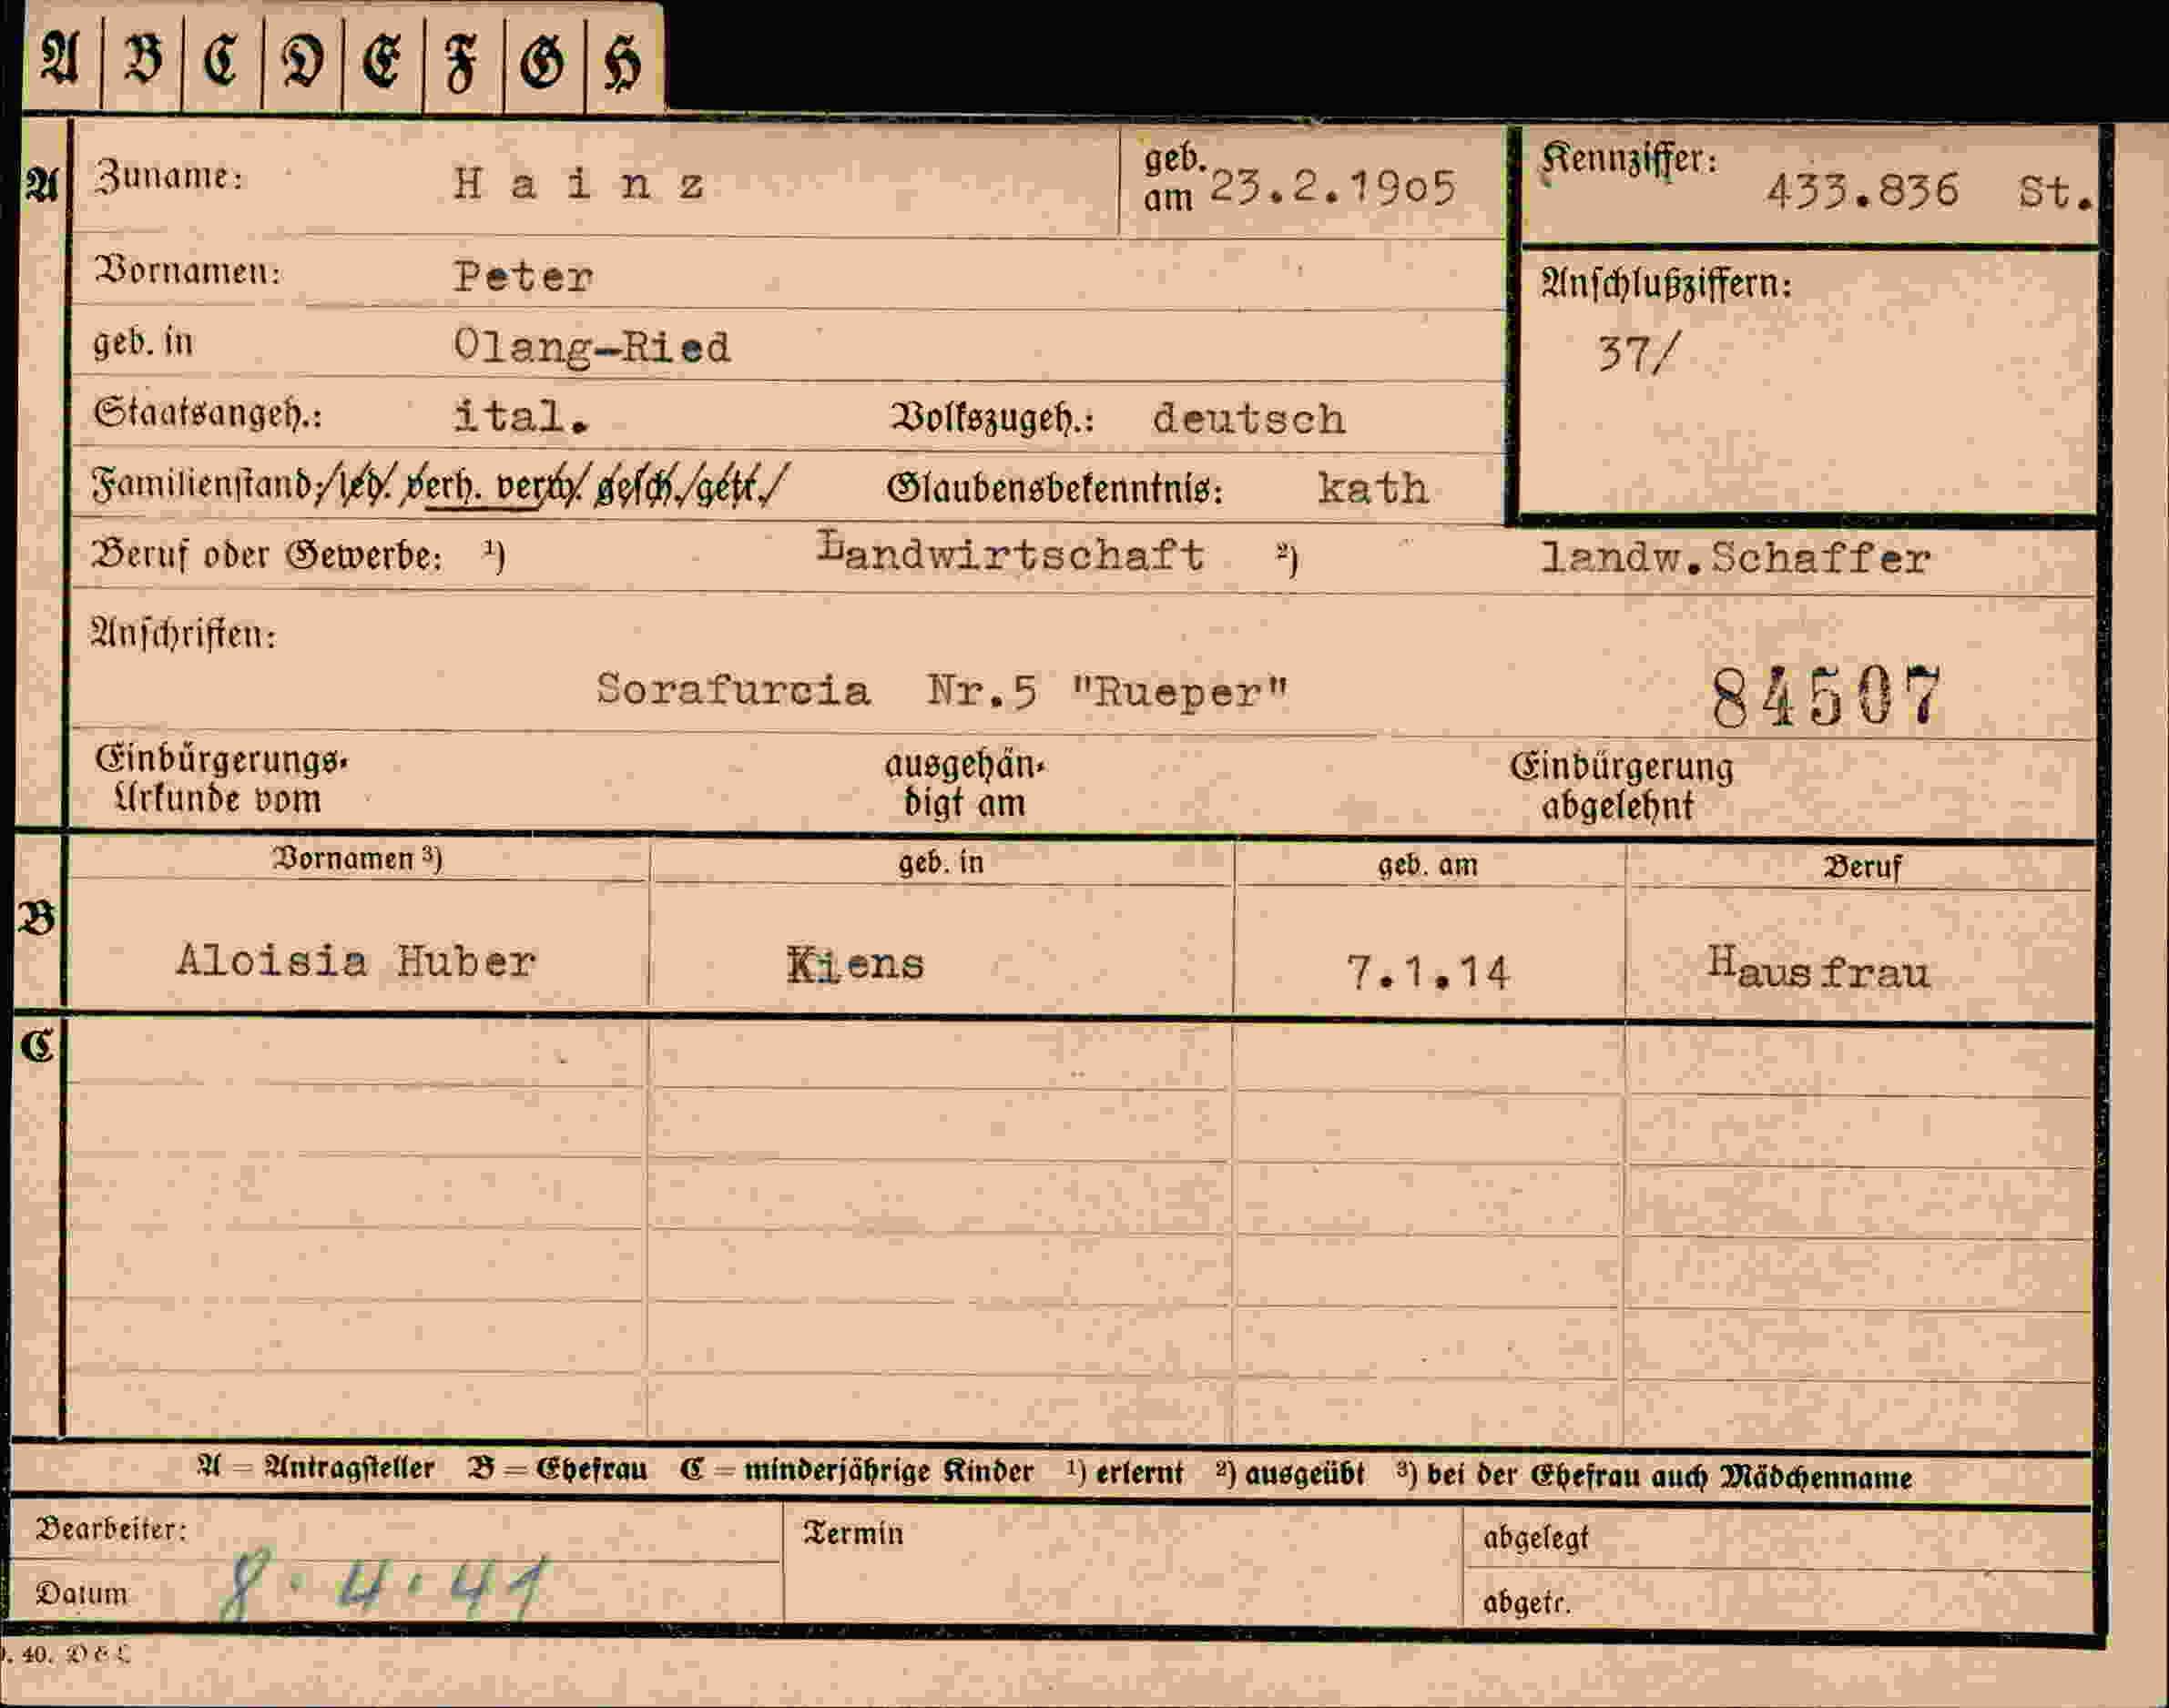 A B C D E F G H
A Zuname: Hainz geb. am 23.2.1905 Kennziffer: 433.836 St.
Vornamen: Peter Anschlußziffern:
geb. in Olang-Ried 37/
Staatsangeh.: ital. Volkszugeh.: deutsch
Familienstand: led. verh. verw. gesch. getr. Glaubensbekenntnis: kath
Beruf oder Gewerbe: ¹) Landwirtschaft ²) landw.Schaffer
Anschriften:
Sorafurcia Nr.5 "Rueper" 84507
Einbürgerungs- ausgehän- Einbürgerung
Urkunde vom digt am abgelehnt
Vornamen ³) geb. in geb. am Beruf
B
Aloisia Huber Kiens 7.1.14 Hausfrau
C
A = Antragsteller B = Ehefrau C = minderjährige Kinder ¹) erlernt ²) ausgeübt ³) bei der Ehefrau auch Mädchenname
Bearbeiter: Termin abgelegt
Datum 8.4.41 abgetr.
40.